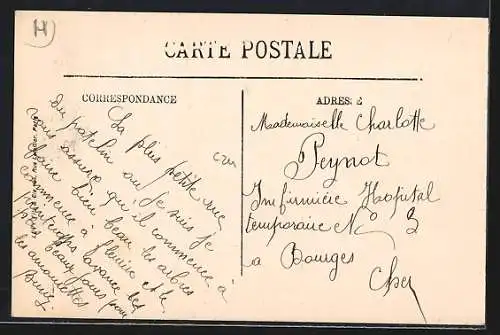 H
CARTE POSTALE
CORRESPONDANCE
ADRESSE
La plus petite rue
du patelin ou je suis je
vous assure qu'il commence à
faire bien beau les arbres
commence à fleurir et le
printemps avance des
beaux jours pour
les amourettes
Mademoiselle Charlotte
Peynot
Infirmière Hopital
temporaire No 3
la Bourges
Cher